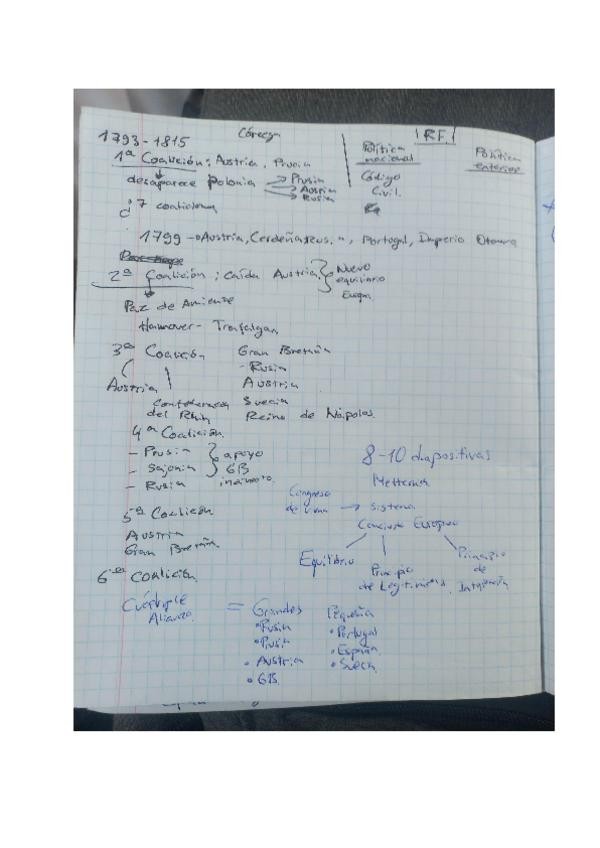 1793-1815 Córcega
R.F.
Política nacional
Política exterior
1ª Coalición: Austria, Prusia
desaparece Polonia → Prusia
→ Austria
→ Rusia
Código
Civil.
7 coaliciones
1799 → Austria, Cerdeña, Rus. Portugal, Imperio Otomano
2ª Coalición; caída Austria } Nuevo
equilibrio
Europa
Paz de Amiens
Hannover - Trafalgar
3ª Coalición Gran Bretaña
- Rusia
Austria Austria
Confederación Suecia
del Rhin Reino de Nápoles
4ª Coalición
- Prusia } apoyo
- Sajonia GB
- Rusia
5ª Coalición
Austria
Gran Bretaña
6ª Coalición
8-10 diapositivas
Metternich
Congreso
de Viena → Sistema
Concierto Europeo
Equilibrio
Principio
de Legitimidad
Principio
de
Cuádruple
Alianza = Grandes
• Rusia
• Prusia
• Austria
• GB
Pequeña
• Portugal
• España
• Suecia